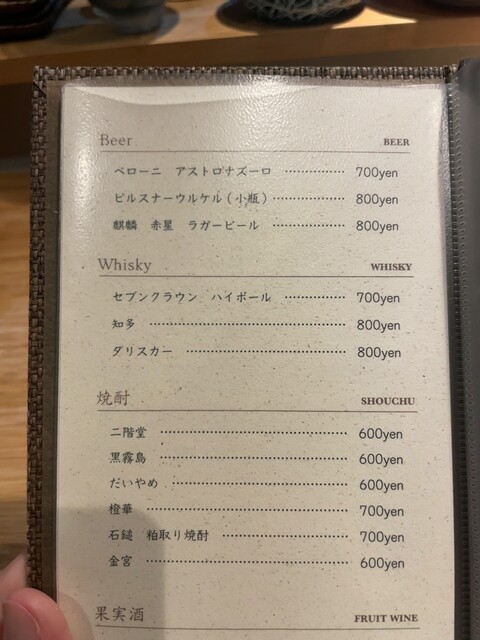 Beer BEER
ペローニ アストロナズーロ ………… 700yen
ピルスナーウルケル(小瓶) ………… 800yen
麒麟 赤星 ラガービール ………… 800yen
Whisky WHISKY
セブンクラウン ハイボール ………… 700yen
知多 ………… 800yen
ダリスカー ………… 800yen
焼酎 SHOUCHU
二階堂 ………… 600yen
黒霧島 ………… 600yen
だいやめ ………… 600yen
橙華 ………… 700yen
石鎚 粕取り焼酎 ………… 700yen
金宮 ………… 600yen
果実酒 FRUIT WINE